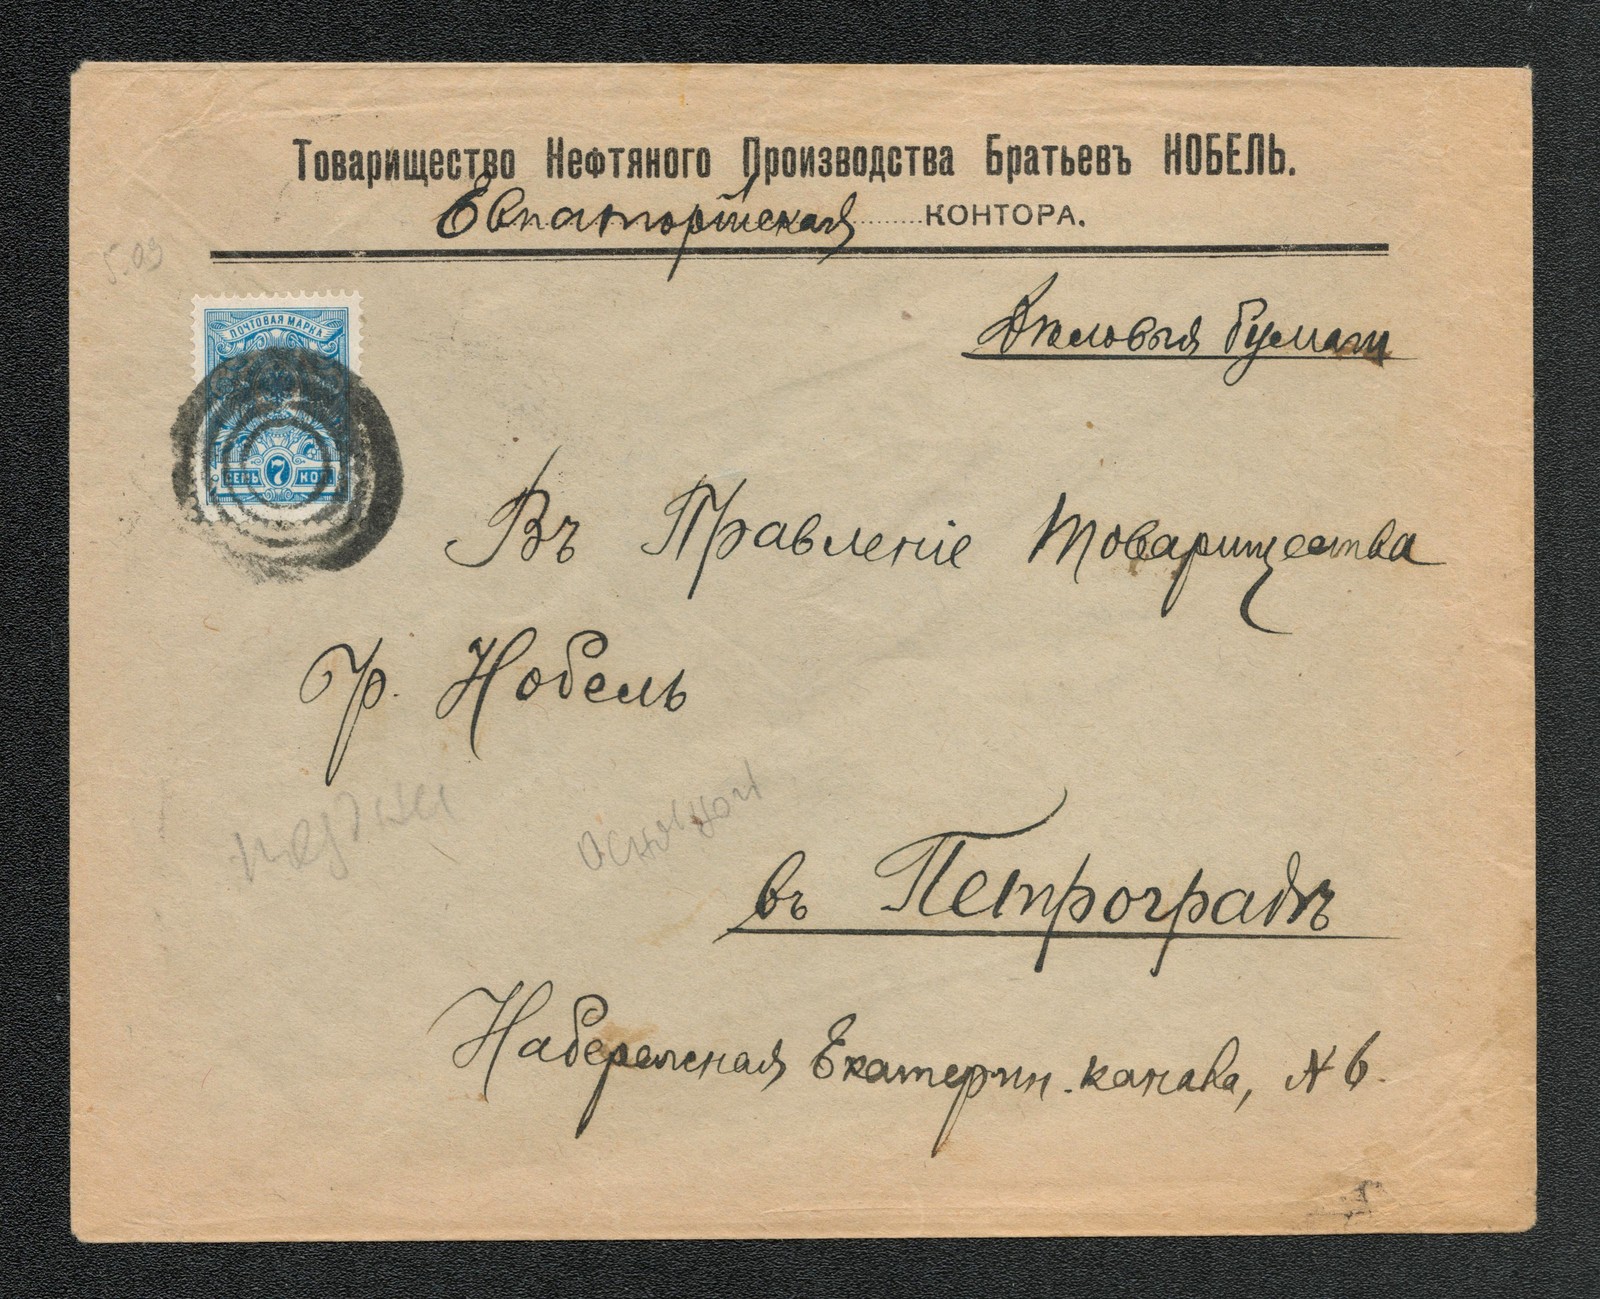 Товарищество Нефтяного Производства Братьевъ НОБЕЛЬ.
Евпаторійская КОНТОРА.
5.09
Дѣловыя бумаги
ПОЧТОВАЯ МАРКА
СЕМЬ 7 КОП.
Въ Правленіе Товарищества
Бр. Нобель
въ Петроградѣ
Набережная Екатерин. канала, N 6.